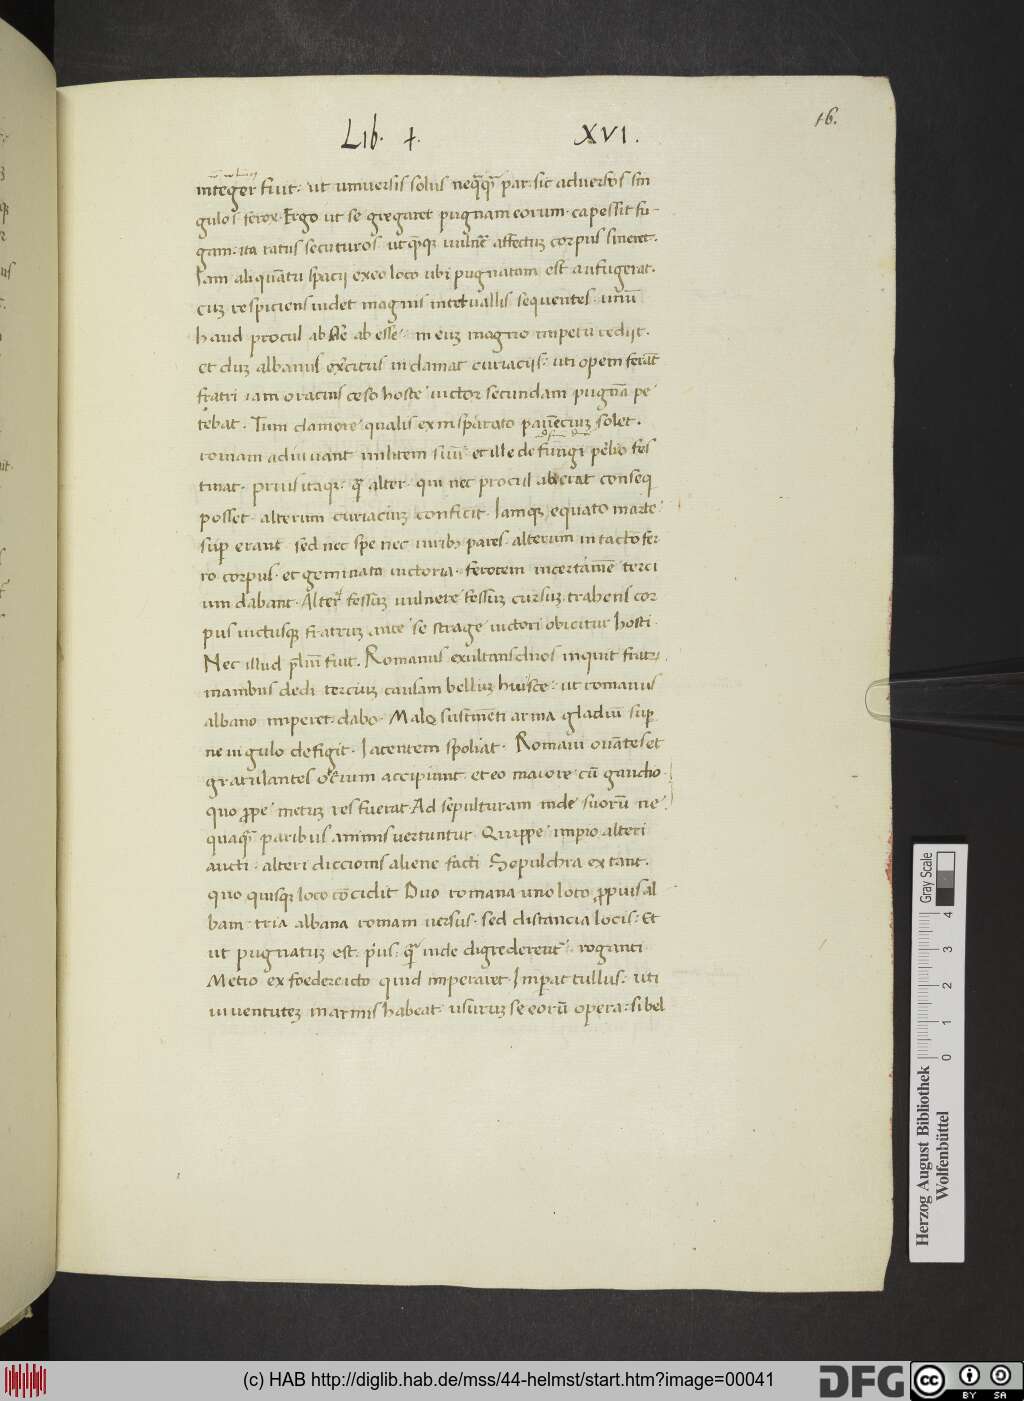 16.
Lib. +. XVI.
integer fuit. ut universis solus neq̄q̄ꝫ par. sic adversus sin
gulos ferox. Ergo ut se gregaret pugnam eorum. capessit fu-
gam. ita ratus secuturos. ut quēqꝫ vulnē affectuꝫ corpus sineret.
Iam aliquātū spacii ex eo loco ubi pugnatum est aufugerat.
cuꝫ respiciens videt magnis intervallis sequentes. unū
haud procul ab se ab esse. in euꝫ magno impetu rediit.
et duꝫ albanus exercitus inclamat curiaciis. uti opem ferāt
fratri iam oracius ceso hoste victor secundam pugnā pe
tebat. Tum clamore qualis ex insperato solet.
romani adiuvant militem suū. et ille defungi prelio fes
tinat. prius itaqꝫ. qꝫ alter. qui nec procul aberat conseq
posset. alterum curiaciuꝫ conficit. Iamqꝫ equato marte
superant sed nec spe nec virib; pares. alterum intactō fer
ro corpus. et geminata victoria. ferocem in certamē terci
um dabant. Alter fessuꝫ vulnere fessuꝫ cursu trahens cor
pus victusqꝫ fratruꝫ ante se strage victori obicitur hosti.
Nec illud pliū fuit. Romanus exultans duos inquit fratrꝫ
manibus dedi terciuꝫ causam belluꝫ huisce. ut romanus
albano imperet. dabo. Male sustinēti arma gladiū sup̄
ne iugulo defigit. Iacentem spoliat. Romani ovātes et
gratulantes oracium accipiunt. et eo maiore cū gaudio.
quo prope metuꝫ res fuerat. Ad sepulturam inde suorū ne
quaqꝫ paribus animis vertuntur. Quippe imperio alteri
aucti. alteri diccionis aliene facti. Sepulchra extant.
quo quisqꝫ loco cōcidit Duo romana uno loco propius al
bam. tria albana romam versus. sed distancia locis. Et
ut pugnatuꝫ est. prius. qꝫ inde digrederent. roganti
Metio ex foedere icto quid imperaret. Imperat tullus. uti
iuventuteꝫ in armis habeat. usuruꝫ se eorū opera. si bel
Herzog August Bibliothek
Wolfenbüttel
Gray Scale
0 1 2 3 4
(c) HAB http://diglib.hab.de/mss/44-helmst/start.htm?image=00041
DFG
cc
BY SA